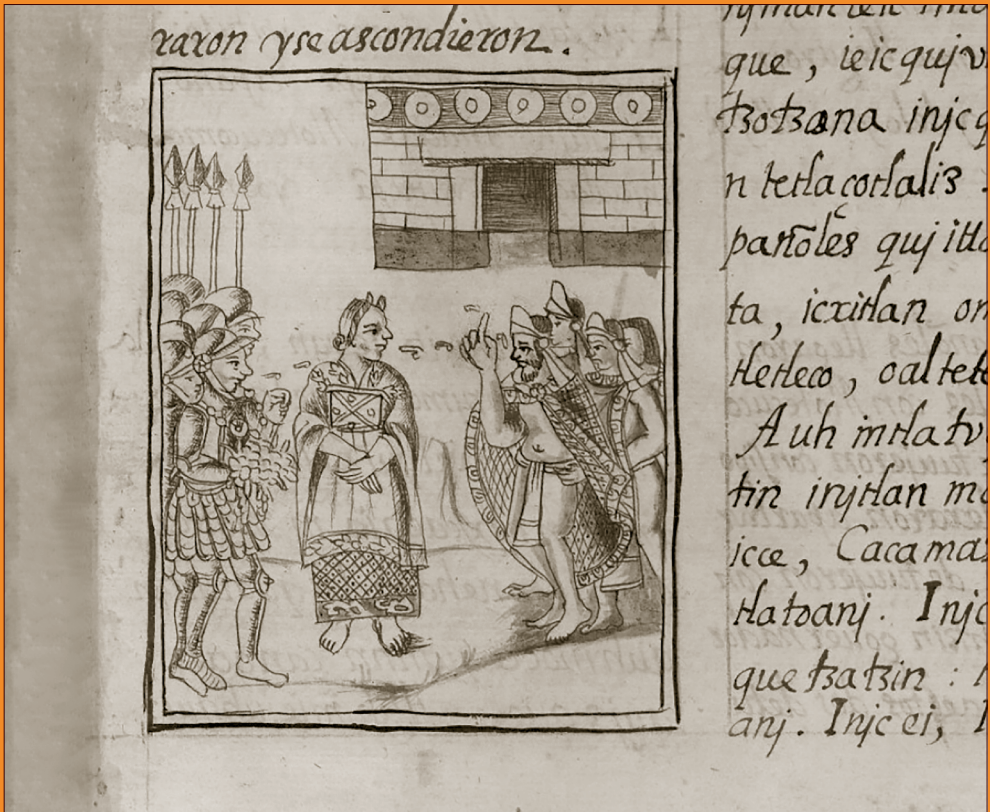 raron yse ascondieron.
que, ieic quiv
tzotzana injc q
n tetlaçotlaliz.
pañoles quj itta
ta, icxitlan on
tletleco, oalte
Auh in tlatv
tin injtlan m
icce, Cacama
tlatoanj. Injc
quetzatzin:
anj. Injc ei,